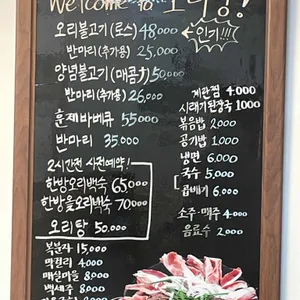 Welcome to 오리랑!
오리불고기 (로스) 48000
인기!!!
반마리 (추가용) 25,000
양념불고기 (매콤) 50,000
반마리 (추가용) 26,000
훈제바베큐 55000
반마리 35000
2시간전 사전예약!
한방오리백숙 65000
한방옻오리백숙 70000
오리탕 50.000
복분자 15,000
막걸리 4000
매실마을 8,000
백세주 8,000
계란찜 4.000
시래기된장국 1000
볶음밥 2,000
공기밥 1.000
냉면 6.000
국수 5,000
곱배기 6.000
소주·맥주 4.000
음료수 2,000